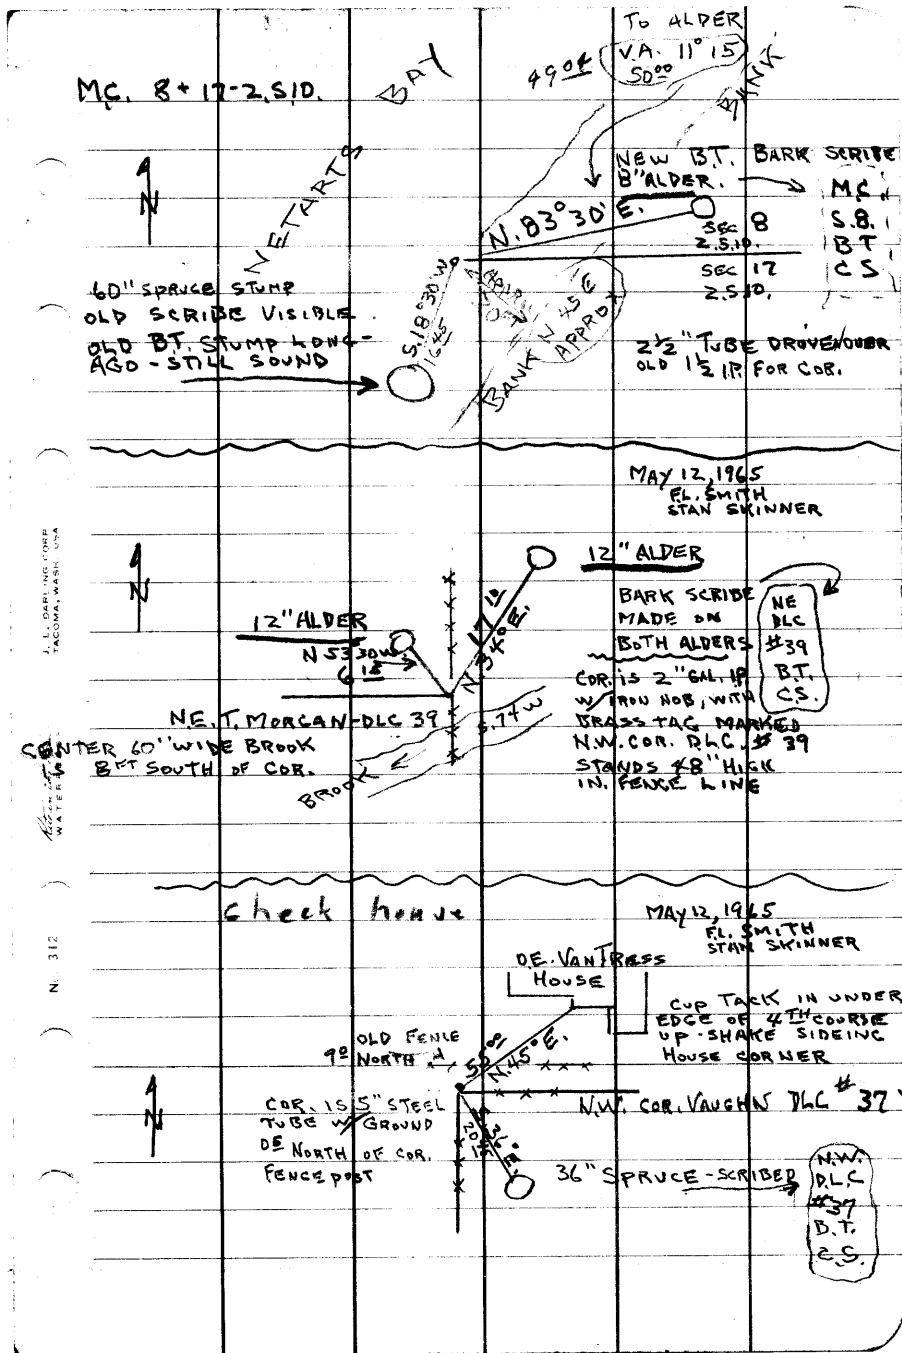 TO ALDER
V.A. 11° 15
50⁰⁰
49 04
BANK
BAY
M.C. 8 + 17-2.S.10.
NETARTS
N
NEW B.T. BARK SCRIBE
8" ALDER.
M.C.
S.8.
B T
C S
N. 83° 30' E.
SEC 8
2.S.10.
SEC 17
2.S.10.
60" SPRUCE STUMP
OLD SCRIBE VISIBLE
OLD BT. STUMP LONG-
AGO - STILL SOUND
S. 18° 30' W
16 45
BANK N 45 E
APPROX
2 1/2" TUBE DROVE/OVER
OLD 1 1/2 I.P. FOR COR.
MAY 12, 1965
F.L. SMITH
STAN SKINNER
J. L. DARLING CORP
TACOMA, WASH. USA
N
12" ALDER
12" ALDER
N 53 30 W.
6 18
17 10
N. 34° E.
BARK SCRIBE
MADE ON
BOTH ALDERS
NE
DLC
#39
B.T.
C.S.
COR. IS 2" GAL. IP.
W/ IRON NOB, WITH
BRASS TAG MARKED
N.W. COR. DLC. # 39
STANDS 48" HIGH
IN. FENCE LINE
N.E. T. MORGAN-DLC 39
CENTER 60" WIDE BROOK
8 FT SOUTH OF COR.
S. 74 W
BROOK
N. 312
Check house
MAY 12, 1965
F.L. SMITH
STAN SKINNER
D.E. VANTRESS
HOUSE
CUP TACK IN UNDER
EDGE OF 4TH COURSE
UP-SHAKE SIDEING
HOUSE CORNER
OLD FENCE
NORTH
N. 45° E.
N
COR. IS 5" STEEL
TUBE W/ GROUND
NORTH OF COR.
FENCE POST
N.W. COR. VAUGHN DLC # 37
36" SPRUCE - SCRIBED
N.W.
D.L.C
#37
B.T.
C.S.